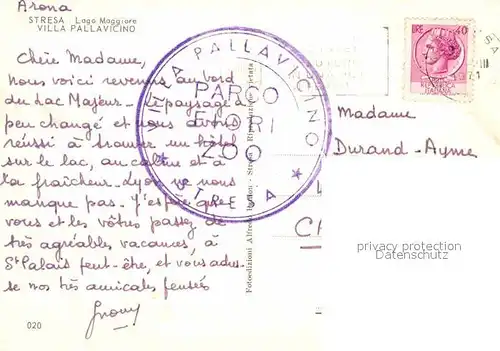 Arona
STRESA Lago Maggiore
VILLA PALLAVICINO
Chère Madame,
nous voici revenus au bord
du Lac Majeur. Le paysage a
peu changé et nous avons
réussi à trouver un hôtel
sur le lac, au calme et à
la fraîcheur. Lyon ne nous
manque pas. J'espère que
vous et les vôtres passez de
très agréables vacances, à
St Palais peut-être, et vous adres-
se nos très amicales pensées
020
VILLA PALLAVICINO
PARCO
ORI
ZOO
* STRESA *
Fotoedizioni Alfredo - Stresa
LIRE 40
ITALIANA
Madame
Durand-Ayme
privacy protection
Datenschutz